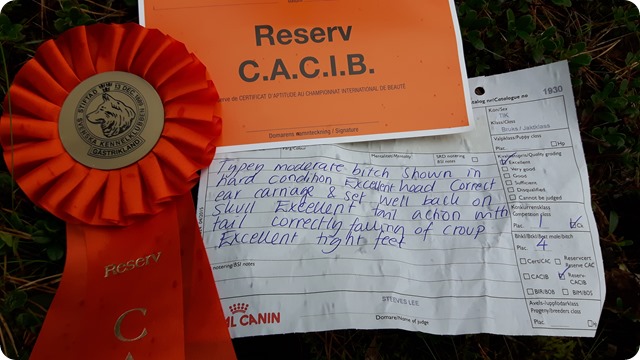 Reserv
C.A.C.I.B.
Réserve de CERTIFICAT D'APTITUDE AU CHAMPIONNAT INTERNATIONAL DE BEAUTÉ
Domarens namnteckning / Signature
STIFTAD 13 DEC. 1889
SVENSKA KENNELKLUBBEN
GÄSTRIKLAND
Reserv
C
A
Katalog nr/Catalogue no 1930
Kön/Sex
TIK
Klass/Class
Bruks-/Jaktklass
Valpklass/Puppy class
Plac. Hp
Mentalitet/Mentality
Kvalitetspris/Quality grading
Excellent
Very good
Good
Sufficient
Disqualified
Cannot be judged
Konkurrensklass
Competition class
Plac. Ck
Plac. 4
Cert/CAC
Reservcert
Reserve CAC
CACIB
Reserv-
CACIB
BIR/BOB
BIM/BOS
Avels-/uppfödarklass
Progeny/breeders class
Plac.
Typey moderate bitch shown in
hard condition Excellent head Correct
ear carriage & set well back on
skull Excellent tail action with
tail correctly falling of croup
Excellent tight feet
notering/BSI notes
ROYAL CANIN
STTOVES LEE
Domare/Name of judge